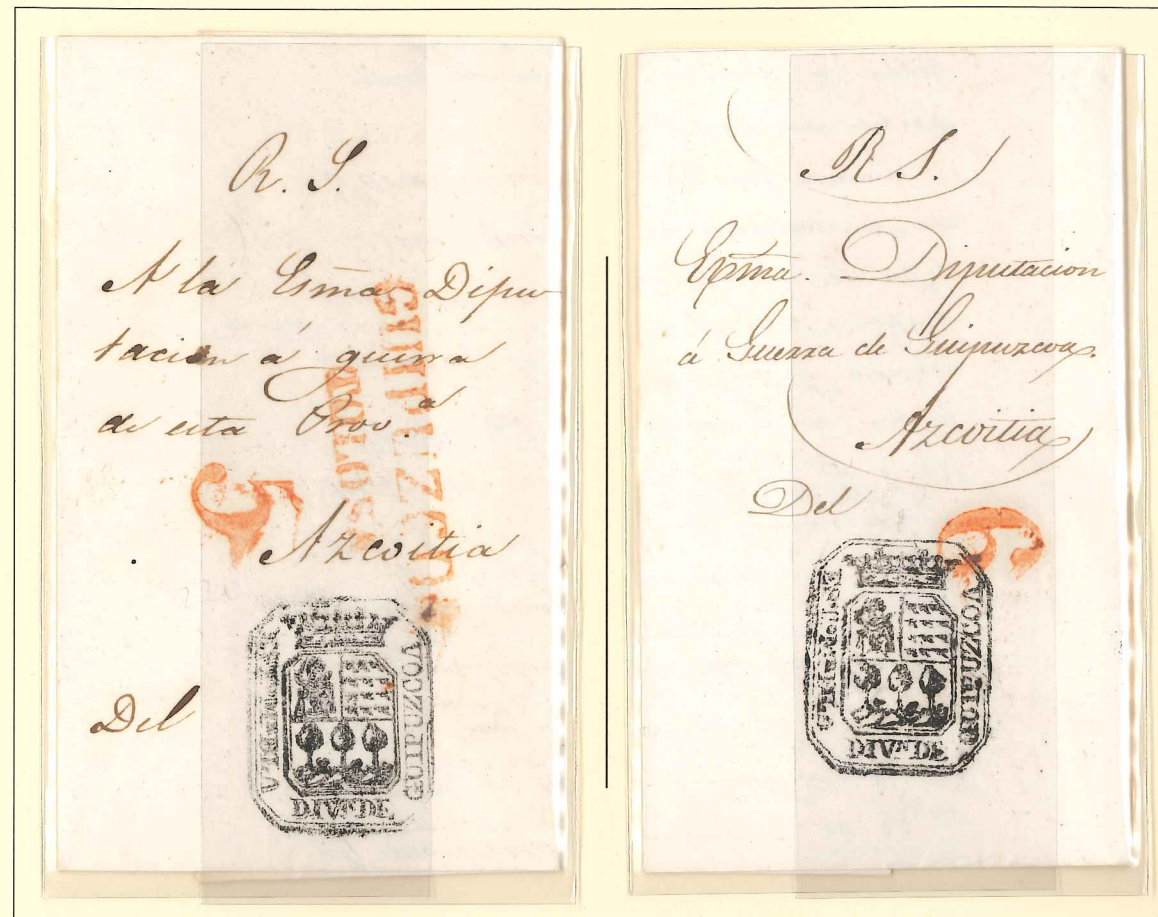 R. S.
A la Esma Dipu
tacion á guerra
de esta Prov.ª
Azcoitia
Del
GUIPUZCOA
DIVⁿ DE
R S.
Exma. Diputacion
á Guerra de Guipuzcoa.
Azcoitia
Del
GUIPUZCOA
DIVⁿ DE